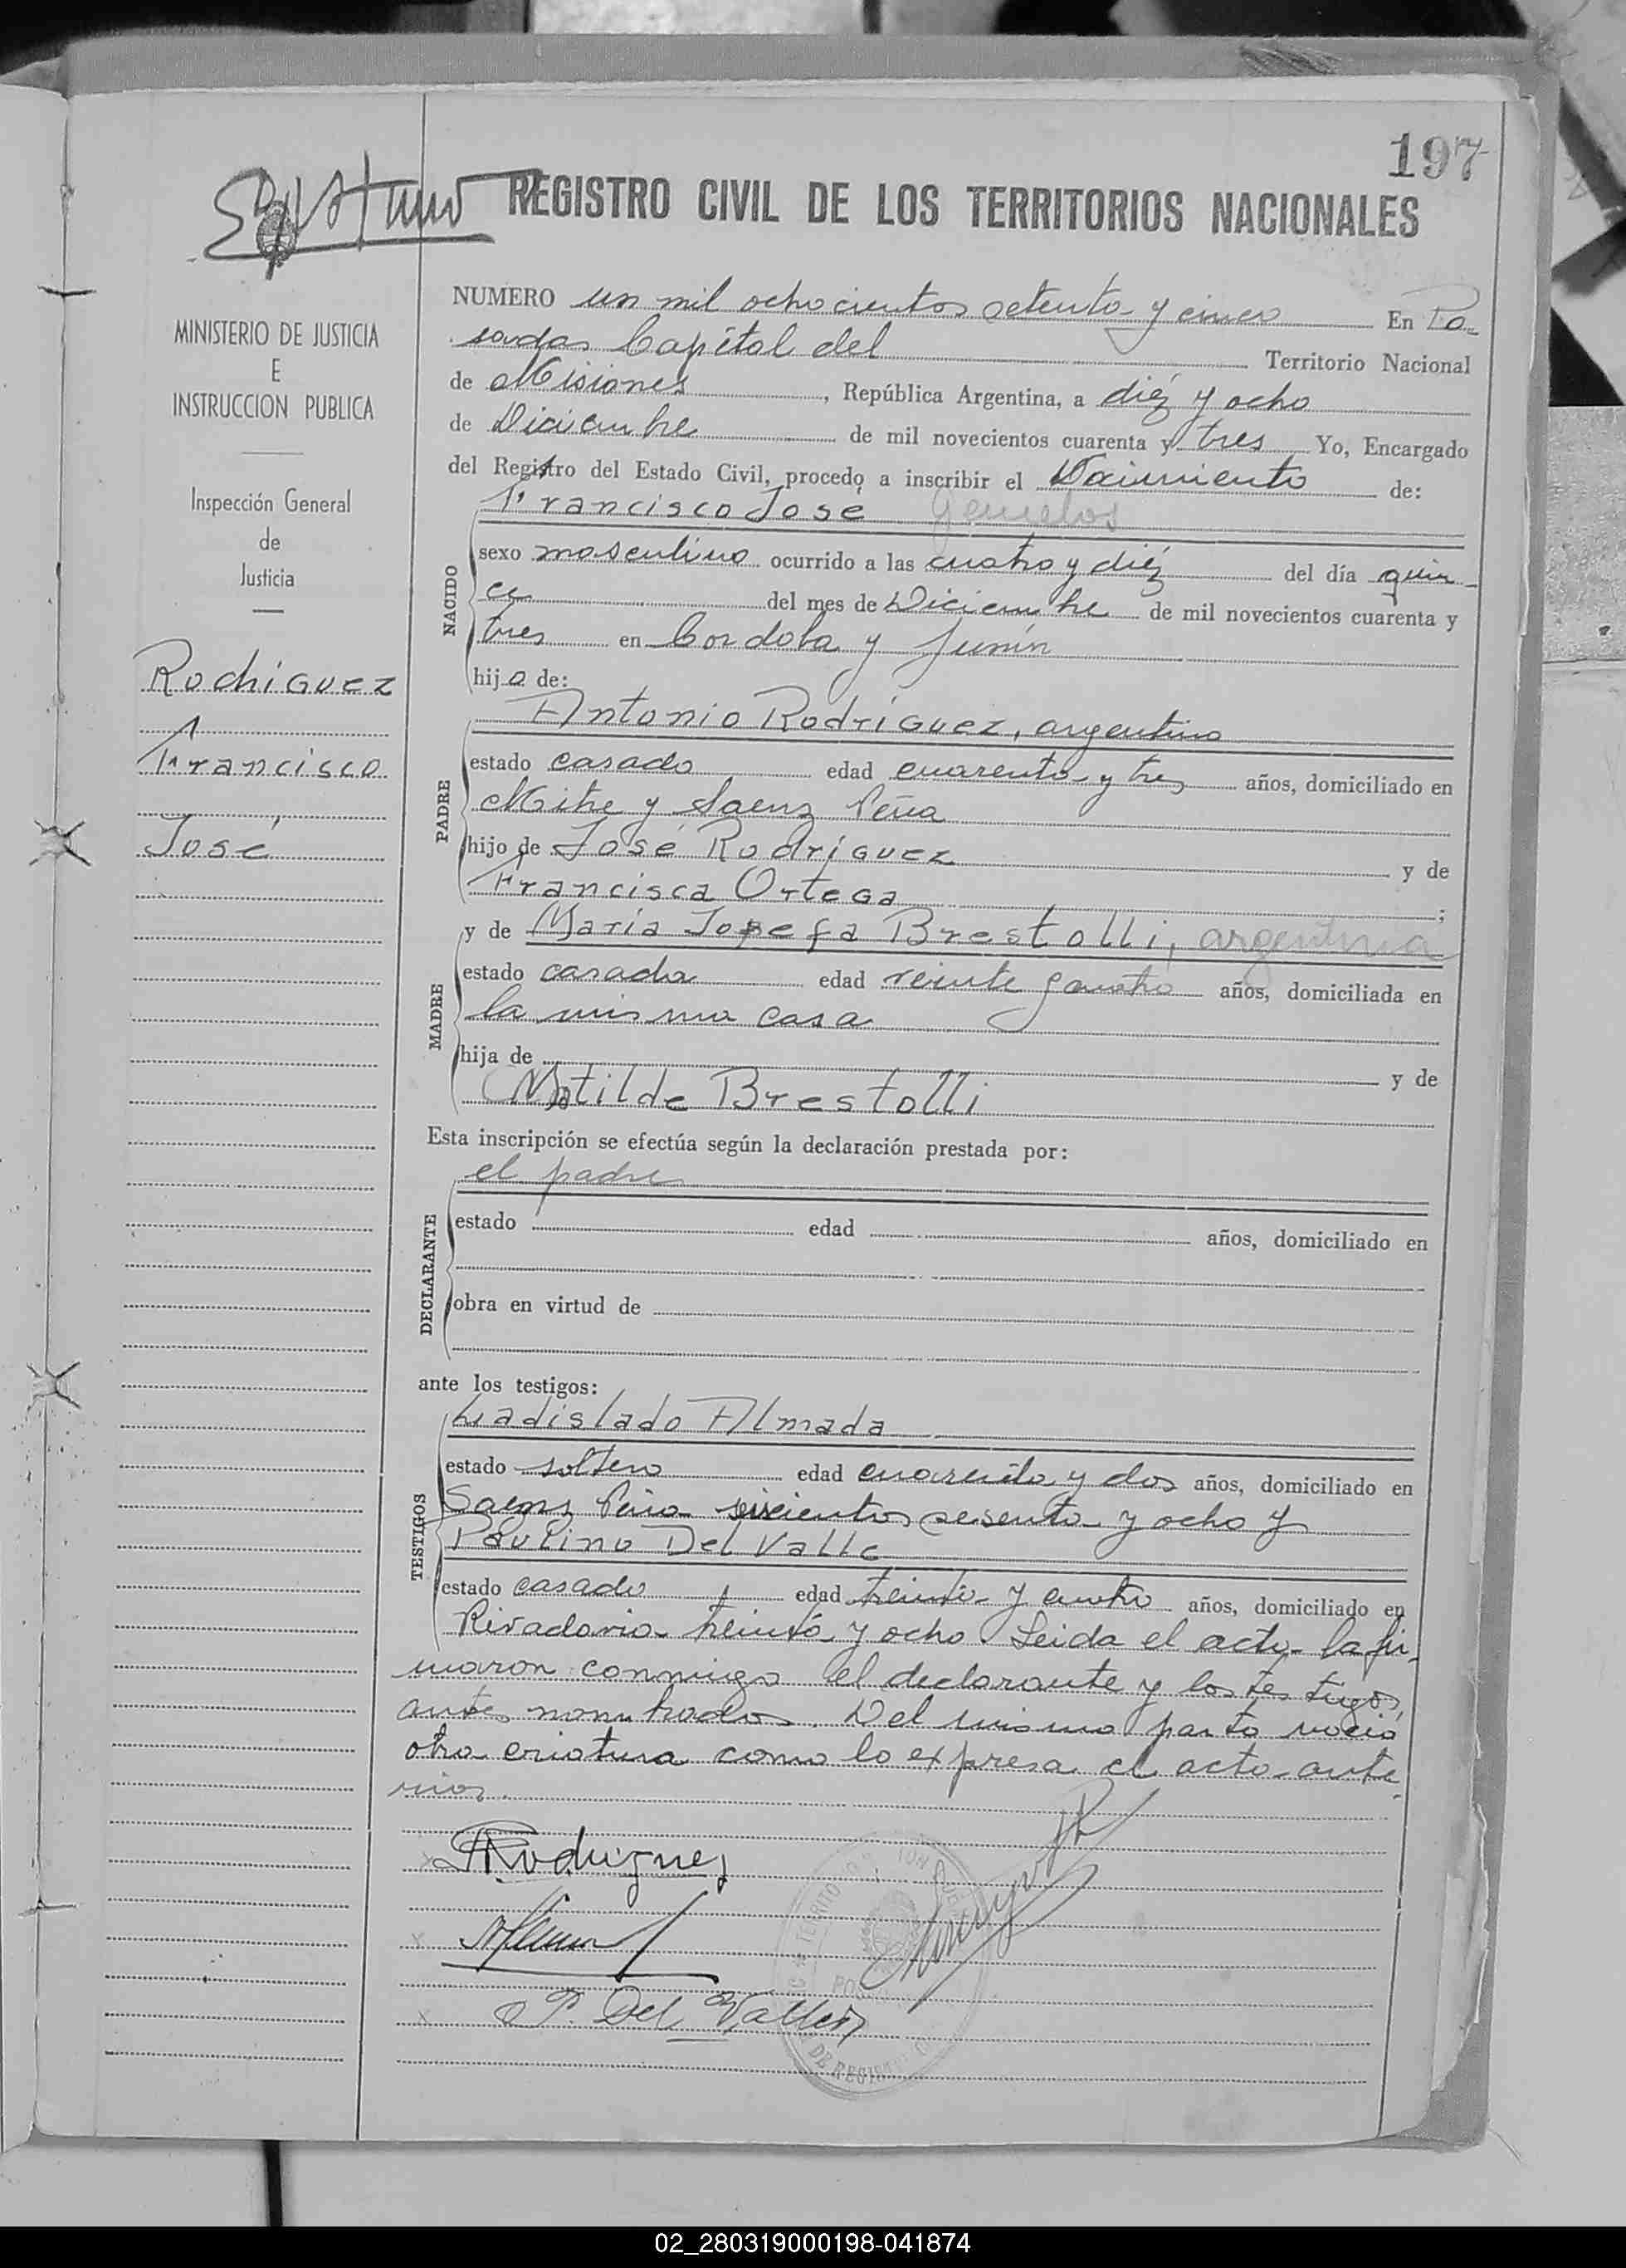 197
REGISTRO CIVIL DE LOS TERRITORIOS NACIONALES
MINISTERIO DE JUSTICIA
E
INSTRUCCION PUBLICA
Inspección General
de
Justicia
Rodriguez
Francisco
José
NUMERO un mil ochocientos setenta y cinco En Po-
sadas Capital del Territorio Nacional
de Misiones, República Argentina, a diéz y ocho
de Diciembre de mil novecientos cuarenta y tres Yo, Encargado
del Registro del Estado Civil, procedo a inscribir el Nacimiento de:
Francisco José Gemelos
NACIDO
sexo masculino ocurrido a las cuatro y diéz del día quin-
ce del mes de Diciembre de mil novecientos cuarenta y
tres en Cordoba y Junín
hijo de:
Antonio Rodríguez, argentino
PADRE
estado casado edad cuarenta y tres años, domiciliado en
Mitre y Saenz Peña
hijo de José Rodríguez y de
Francisca Ortega ;
y de María Josefa Brestolli, argentina
MADRE
estado casada edad veinte y cuatro años, domiciliada en
la misma casa
hija de y de
Matilde Brestolli
Esta inscripción se efectúa según la declaración prestada por:
el padre
DECLARANTE
estado edad años, domiciliado en
obra en virtud de
ante los testigos:
Ladislado Almada
TESTIGOS
estado soltero edad cuarenta y dos años, domiciliado en
Saenz Peña seiscientos sesenta y ocho y
Paulino Del Valle
estado casado edad treinta y cuatro años, domiciliado en
Rivadavia treinta y ocho Leida el acta la fir-
maron conmigo el declarante y los testigos
antes nombrados. Del mismo parto nació
otra criatura como lo expresa el acta ante-
rior.
ARodriguez
P. Del Valle
02_280319000198-041874